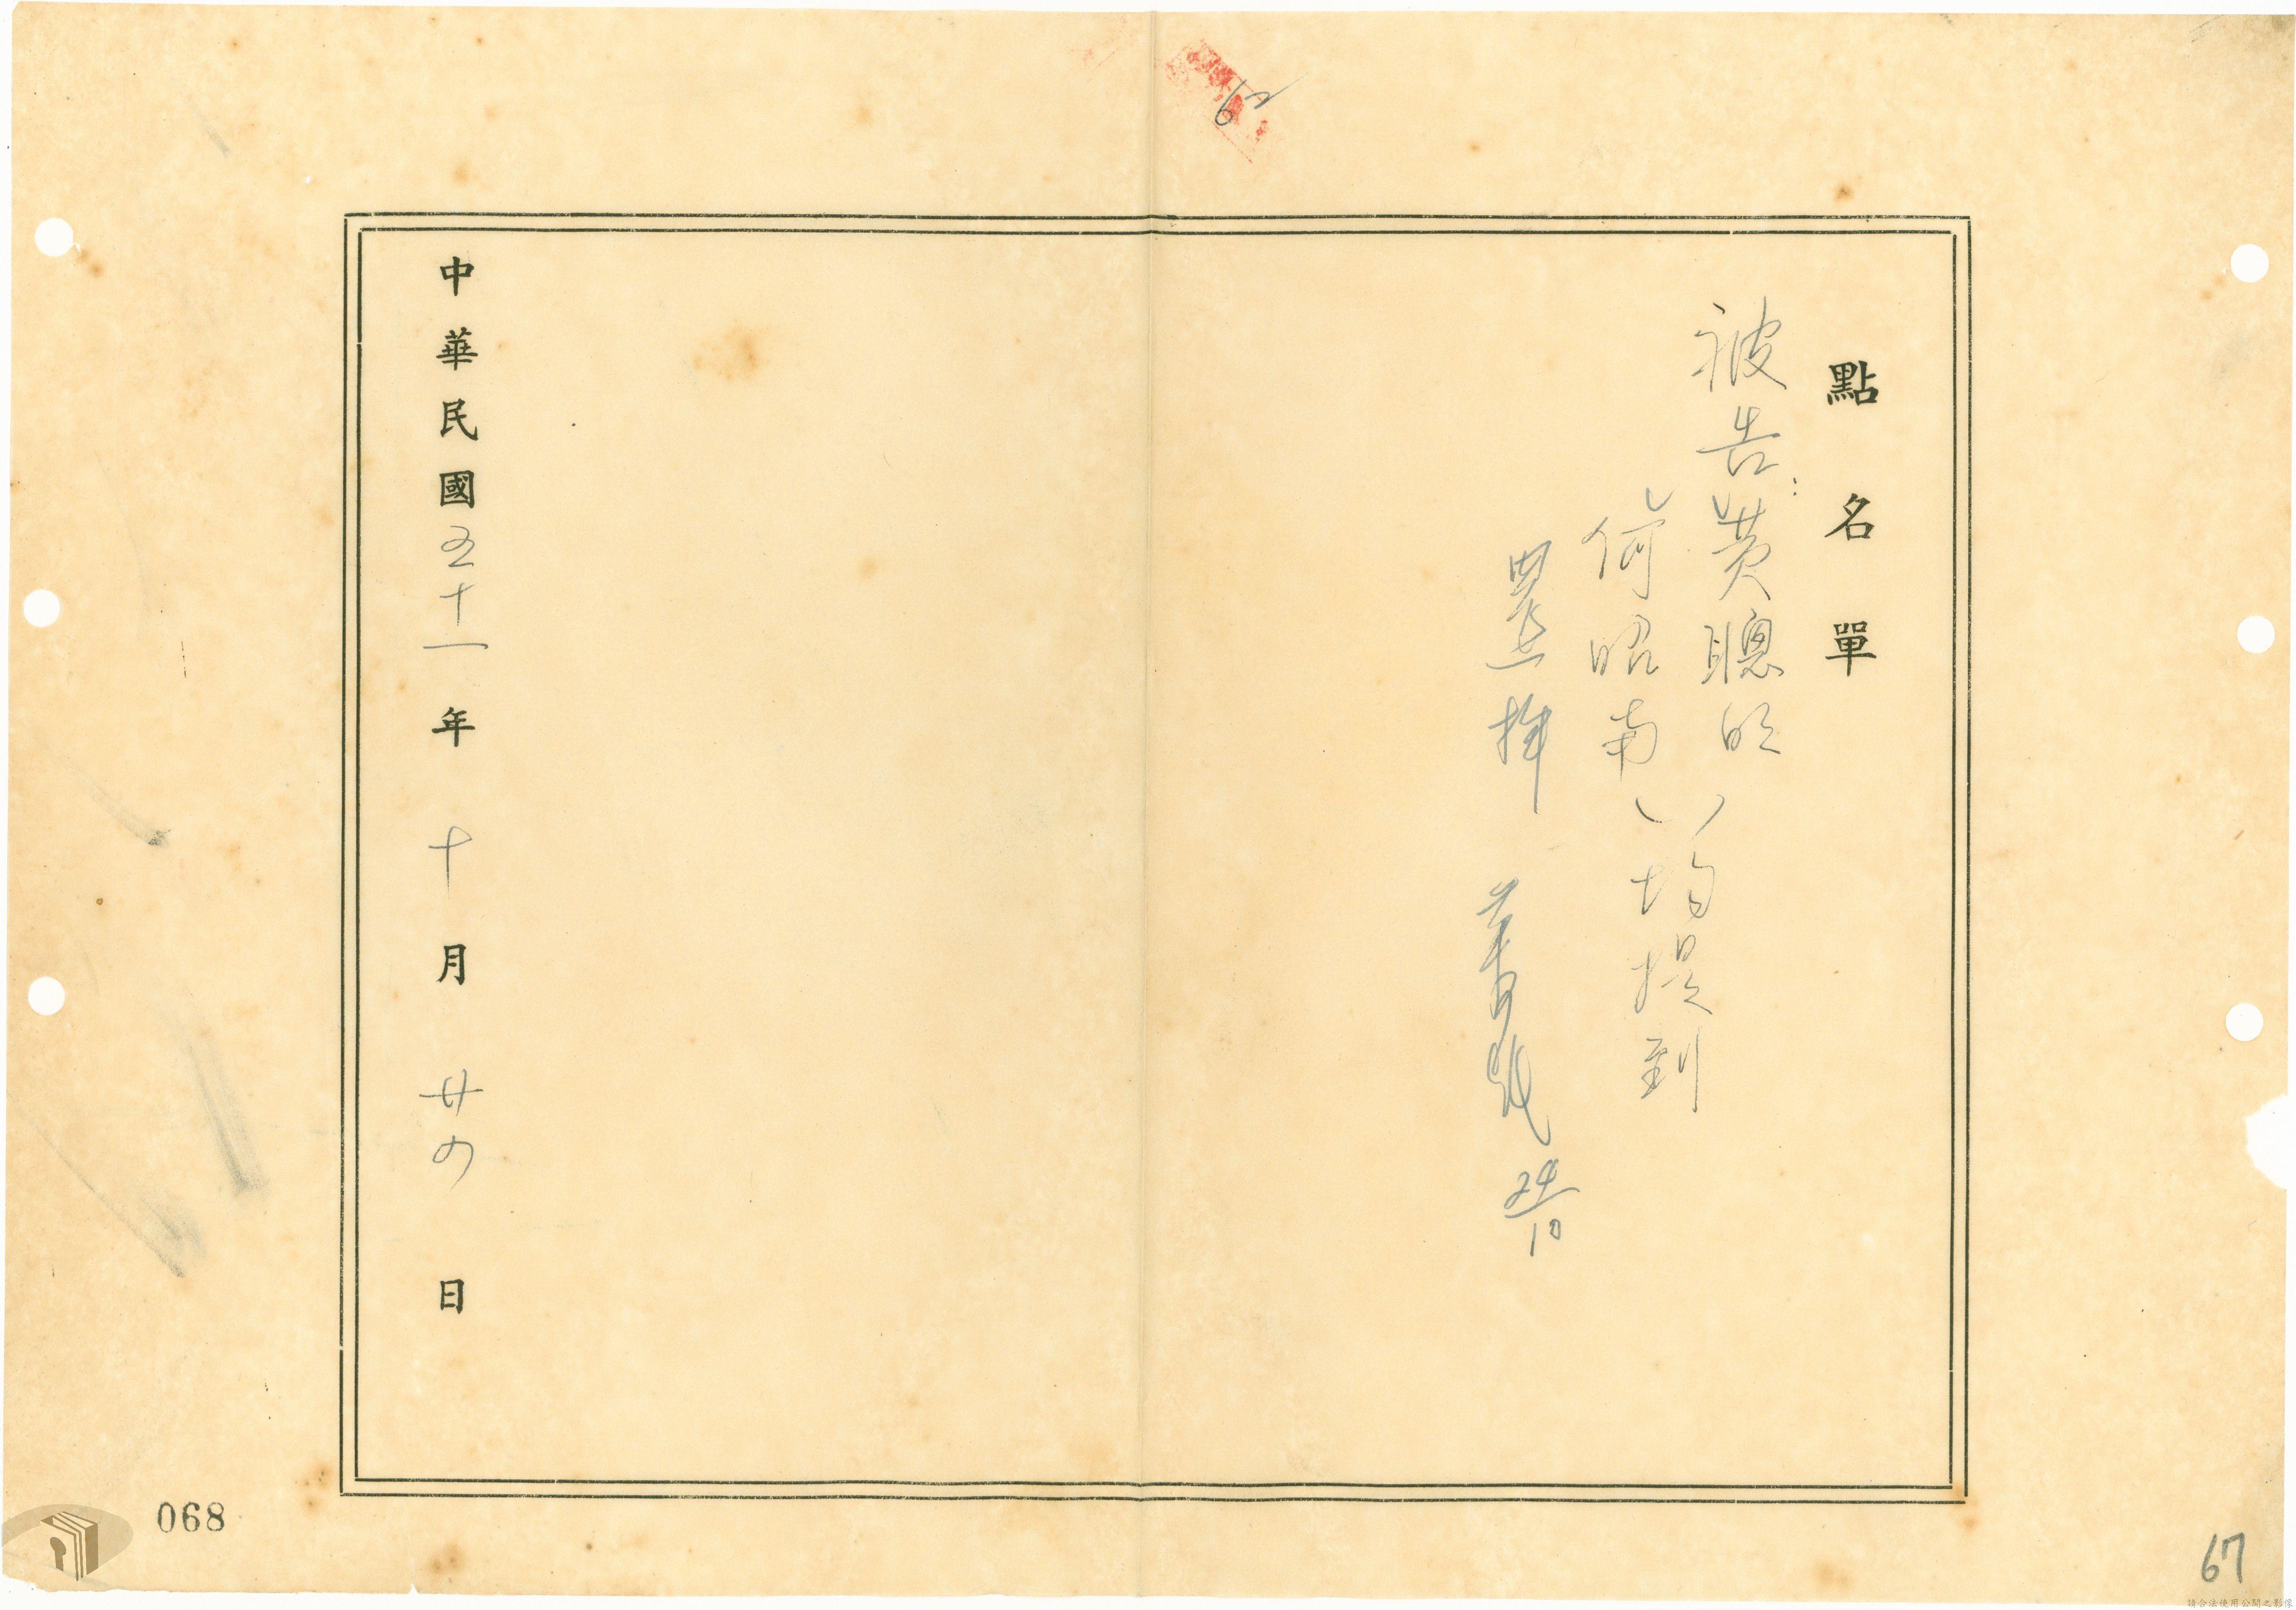 點名單
被告：黃聰明
何昭南
均提到
還押
24/10
中華民國五十一年十月廿四日
62
068
67
請合法使用公開之影像